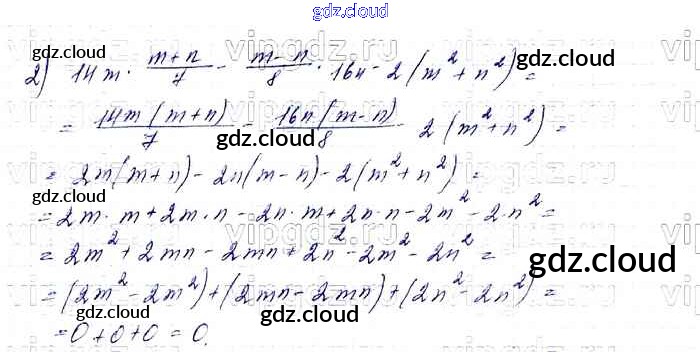 gdz.cloud
gdz.cloud
2) 14m · (m+n)/7 - (m-n)/8 · 16n - 2(m² + n²) =
gdz.cloud
= 14m(m+n)/7 - 16n(m-n)/8 - 2(m²+n²) =
gdz.cloud
= 2m(m+n) - 2n(m-n) - 2(m²+n²) =
gdz.cloud
= 2m·m + 2m·n - 2n·m + 2n·n - 2m² - 2·n² =
gdz.cloud
= 2m² + 2mn - 2mn + 2n² - 2m² - 2n² =
gdz.cloud
= (2m² - 2m²) + (2mn - 2mn) + (2n² - 2n²) =
gdz.cloud
= 0 + 0 + 0 = 0.
gdz.cloud